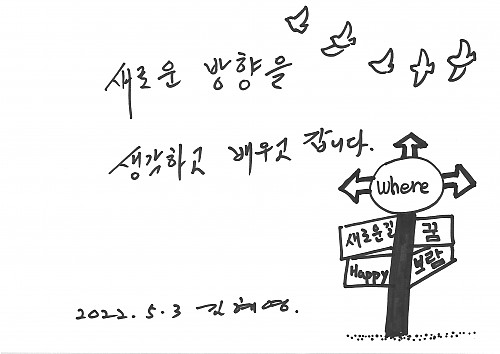 새로운 방향을
생각하고 배우고 갑니다.
where
새로운길
꿈
Happy
보람
2022. 5. 3 김혜영.